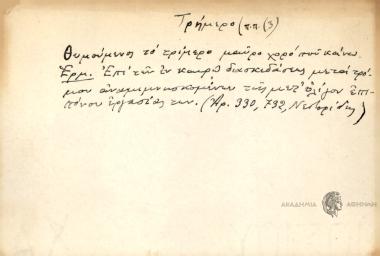 Τρήμερο (π.π. (3)
Θυμούμενος τό τρίμερο μαῦρο χορό ποὺ κάνω.
Ἑρμ. Ἐπὶ τῶν ἐν καιρῷ διασκεδάσεως μετὰ τρό-
μου ἀναμιμνησκομένων τῆς μετ' ὀλίγον ἐπι-
πόνου ἐργασίας των. (Ἀρ. 330, 732, Νεστορίδης)
ΑΚΑΔΗΜΙΑ ΑΘΗΝΩΝ